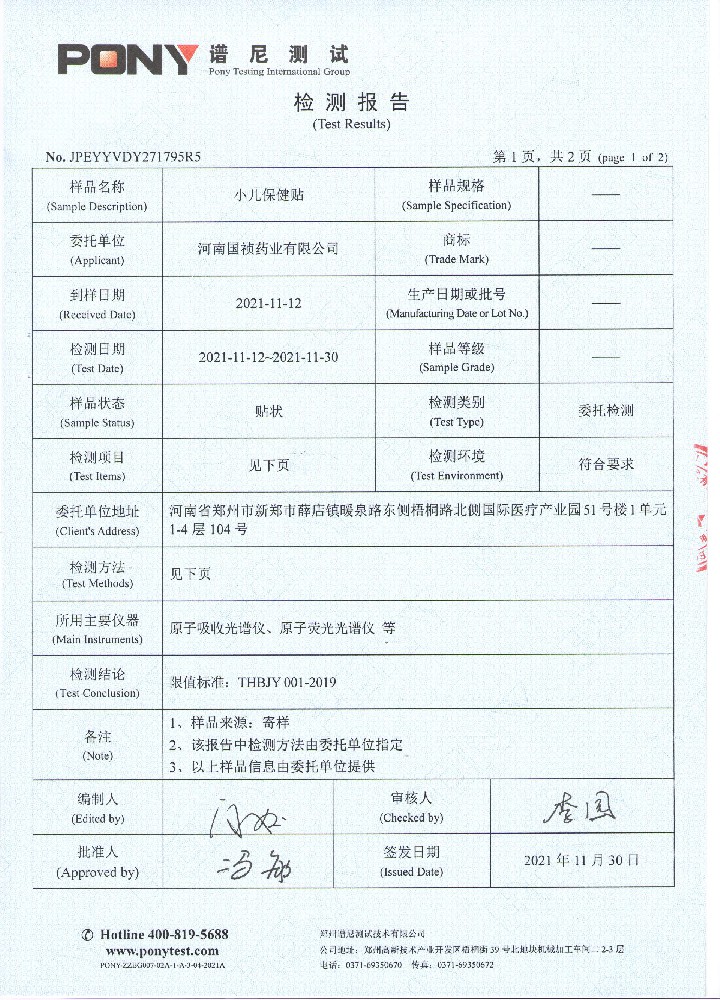 PONY 谱尼测试
Pony Testing International Group
检测报告
(Test Results)
No. JPEYYVDY271795R5
第 1 页，共 2 页 (page 1 of 2)
样品名称 小儿保健贴 样品规格 ——
(Sample Description) (Sample Specification)
委托单位 河南国祯药业有限公司 商标 ——
(Applicant) (Trade Mark)
到样日期 2021-11-12 生产日期或批号 ——
(Received Date) (Manufacturing Date or Lot No.)
检测日期 2021-11-12~2021-11-30 样品等级 ——
(Test Date) (Sample Grade)
样品状态 贴状 检测类别 委托检测
(Sample Status) (Test Type)
检测项目 见下页 检测环境 符合要求
(Test Items) (Test Environment)
委托单位地址 河南省郑州市新郑市薛店镇暖泉路东侧梧桐路北侧国际医疗产业园 51 号楼 1 单元
(Client's Address) 1-4 层 104 号
检测方法 见下页
(Test Methods)
所用主要仪器 原子吸收光谱仪、原子荧光光谱仪 等
(Main Instruments)
检测结论 限值标准：THBJY 001-2019
(Test Conclusion)
备注 1、样品来源：寄样
(Note) 2、该报告中检测方法由委托单位指定
3、以上样品信息由委托单位提供
编制人 审核人 李国
(Edited by) (Checked by)
批准人 冯敏 签发日期 2021 年 11 月 30 日
(Approved by) (Issued Date)
Hotline 400-819-5688
www.ponytest.com
PONY-ZZBG007-02A-1-A-3-04-2021A
郑州谱尼测试技术有限公司
公司地址：郑州高新技术产业开发区梧桐街 39 号北地块机械加工车间二 2-3 层
电话：0371-69350670 传真：0371-69350672